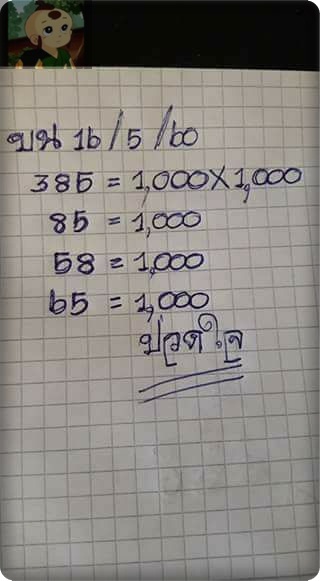 บน 16/5/60
385 = 1,000X1,000
85 = 1,000
58 = 1,000
65 = 1,000
ปวดใจ